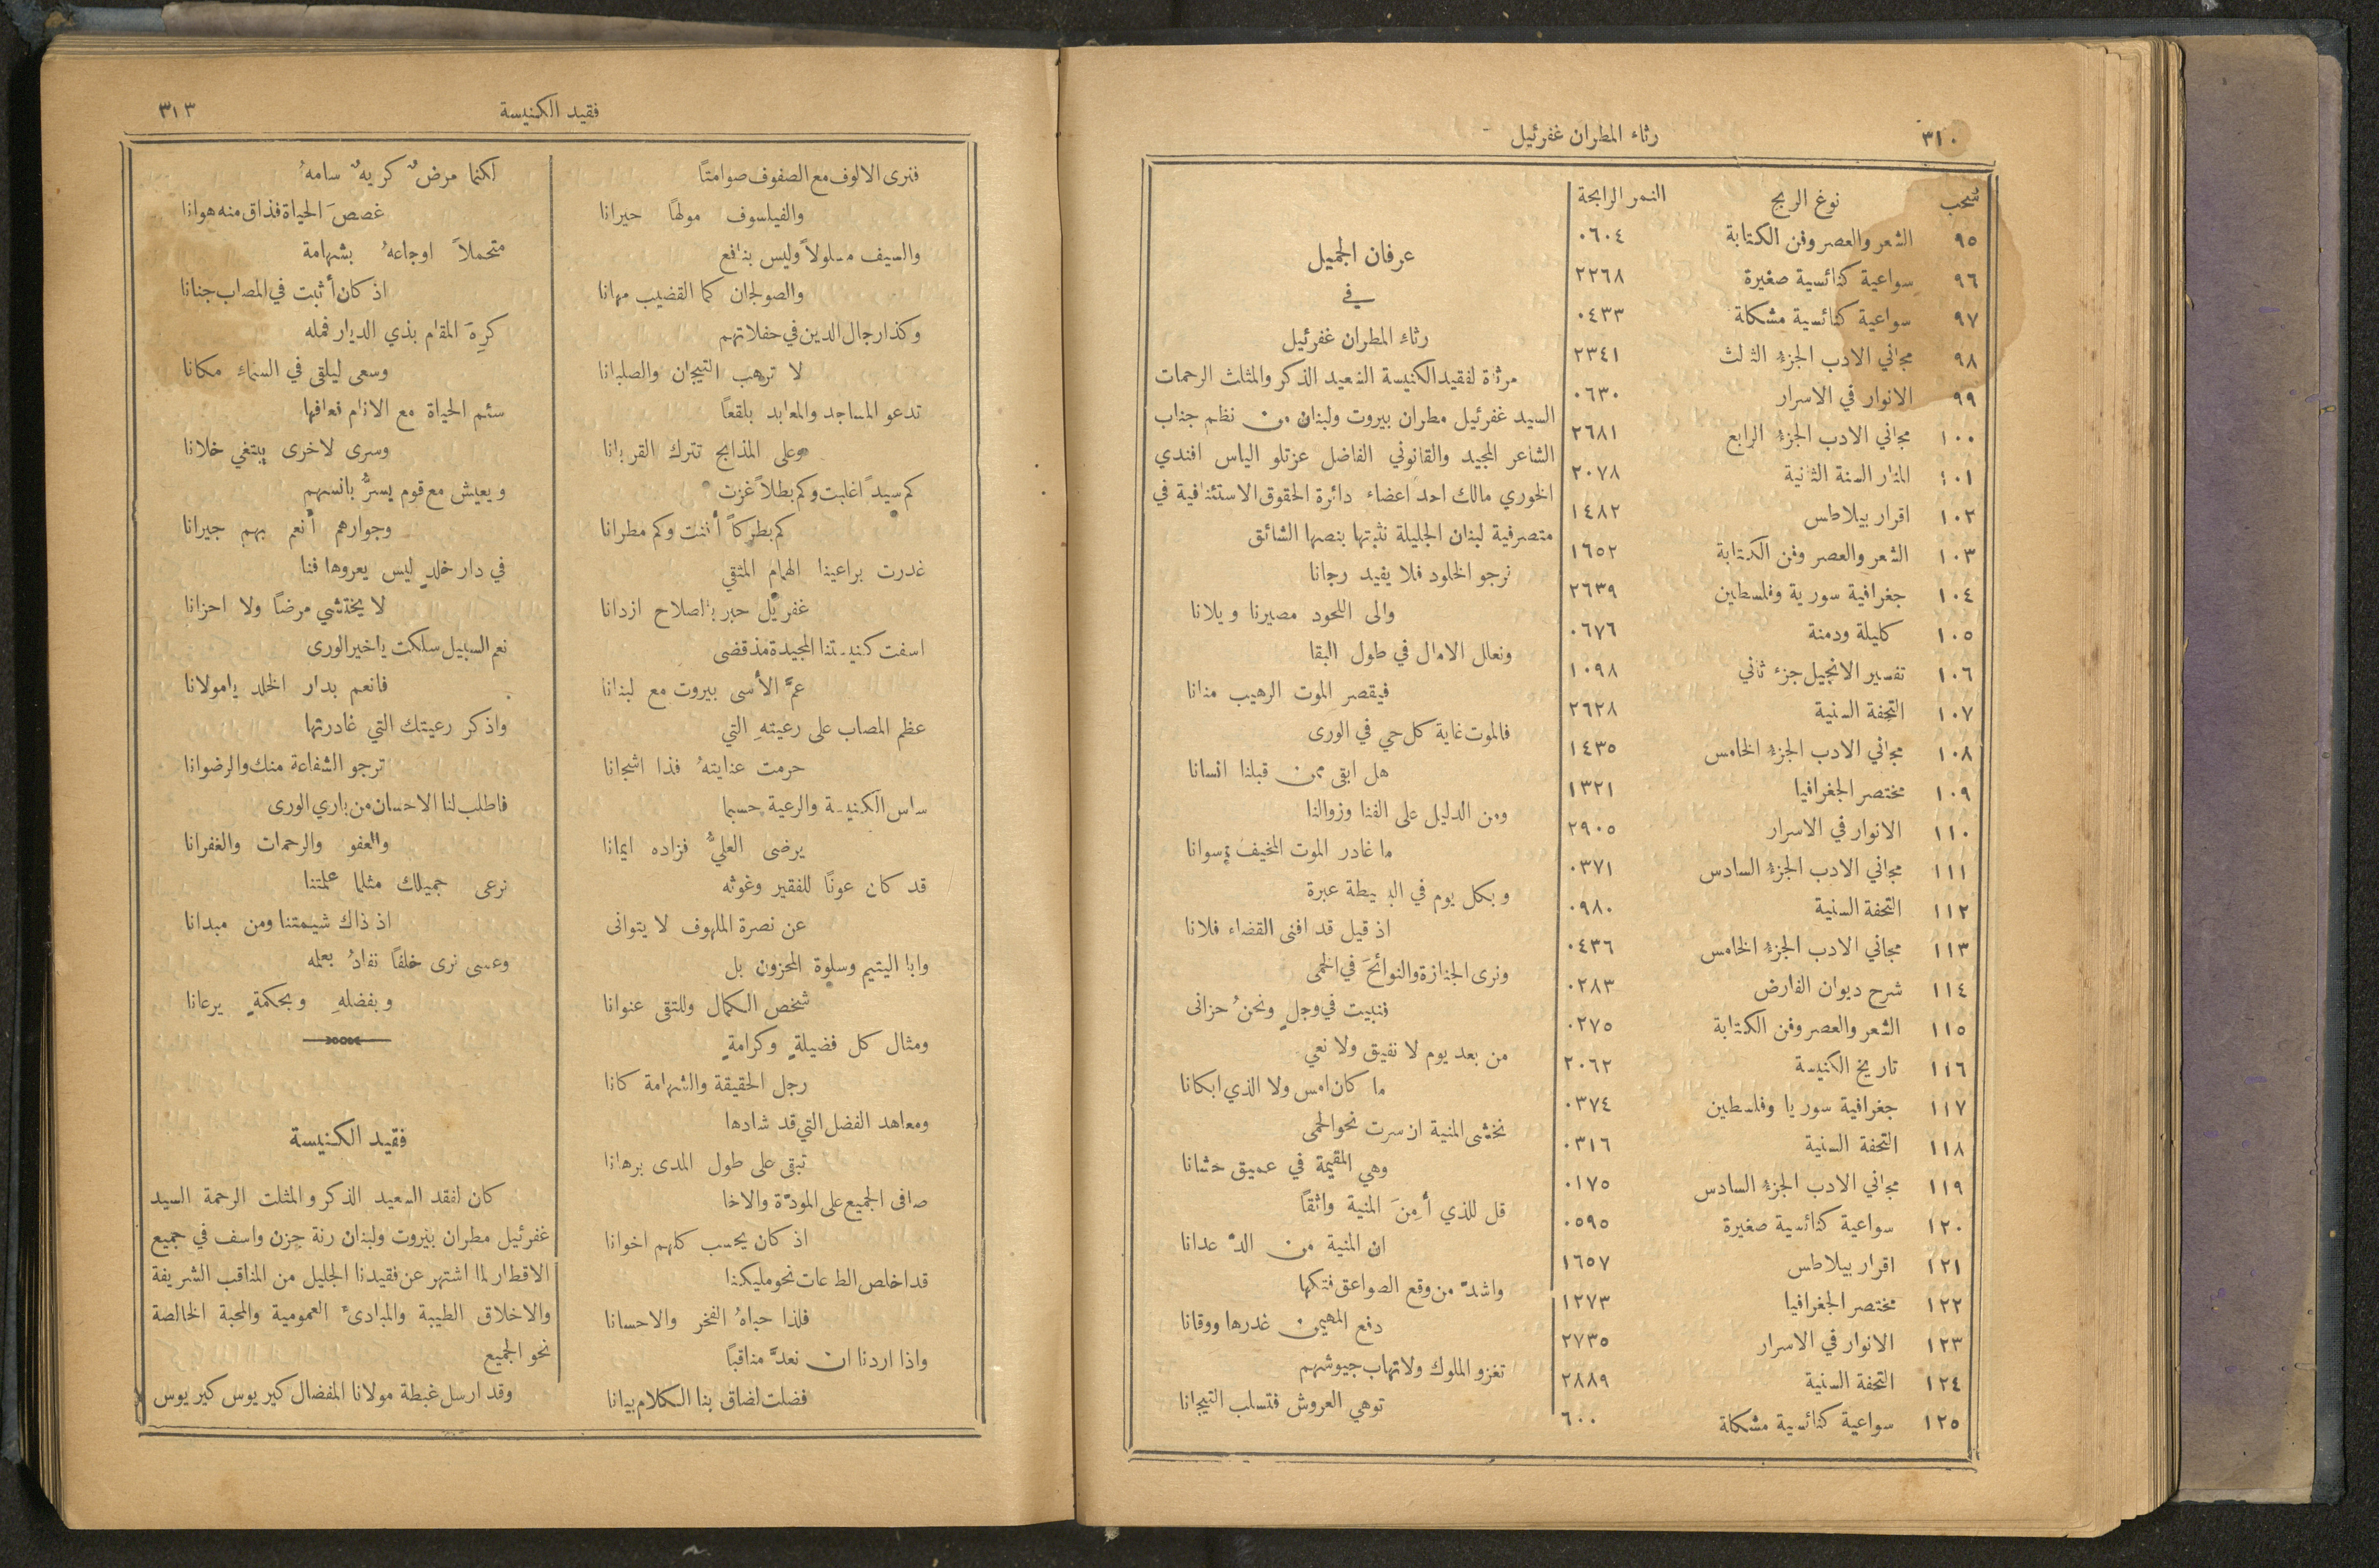 ٣١٠
رثاء المطران غفرئيل
سحب نوغ الربح النمر الرابحة
٩٥ الشعر والعصر وفن الكتابة ٠٦٠٤
٩٦ سواعية كنائسية صغيرة ٢٢٦٨
٩٧ سواعية كنائسية مشكلة ٠٤٣٣
٩٨ مجاني الادب الجزء الثالث ٢٣٤١
٩٩ الانوار في الاسرار ٠٦٣٠
١٠٠ مجاني الادب الجزء الرابع ٢٦٨١
١٠١ المنار السنة الثانية ٢٠٧٨
١٠٢ اقرار بيلاطس ١٤٨٢
١٠٣ الشعر والعصر وفن الكتابة ١٦٥٢
١٠٤ جغرافية سورية وفلسطين ٢٦٣٩
١٠٥ كليلة ودمنة ٠٦٧٦
١٠٦ تفسير الانجيل جزء ثاني ١٠٩٨
١٠٧ التحفة السنية ٢٦٢٨
١٠٨ مجاني الادب الجزء الخامس ١٤٣٥
١٠٩ مختصر الجغرافيا ١٣٢١
١١٠ الانوار في الاسرار ٢٩٠٥
١١١ مجاني الادب الجزء السادس ٠٣٧١
١١٢ التحفة السنية ٠٩٨٠
١١٣ مجاني الادب الجزء الخامس ٠٤٣٦
١١٤ شرح ديوان الفارض ٠٢٨٣
١١٥ الشعر والعصر وفن الكتابة ٠٢٧٥
١١٦ تاريخ الكنيسة ٢٠٦٢
١١٧ جغرافية سوريا وفلسطين ٠٣٧٤
١١٨ التحفة السنية ٠٣١٦
١١٩ مجاني الادب الجزء السادس ٠١٧٥
١٢٠ سواعية كنائسية صغيرة ٠٥٩٥
١٢١ اقرار بيلاطس ١٦٥٧
١٢٢ مختصر الجغرافيا ١٢٧٣
١٢٣ الانوار في الاسرار ٢٧٣٥
١٢٤ التحفة السنية ٢٨٨٩
١٢٥ سواعية كنائسية مشكلة ٦٠٠
عرفان الجميل
في
رثاء المطران غفرئيل
مرثاة لفقيد الكنيسة السعيد الذكر والمثلث الرحمات
السيد غفرئيل مطران بيروت ولبنان من نظم جناب
الشاعر المجيد والقانوني الفاضل عزتلو الياس افندي
الخوري مالك احد اعضاء دائرة الحقوق الاستئنافية في
متصرفية لبنان الجليلة نثبتها بنصها الشائق
نرجو الخلود فلا يفيد رجانا
والى اللحود مصيرنا ويلانا
ونعلل الامال في طول البقا
فيقصر الموت الرهيب منانا
فالموت غاية كل حي في الورى
هل ابقى ممن قبلنا انسانا
ومن الدليل على الفنا وزوالنا
ما غادر الموت المخيف سوانا
وبكل يوم في البسيطة عبرة
اذ قيل قد افنى القضاء فلانا
ونرى الجنازة والنوائحَ في الحمى
فنبيت في وجلٍ ونحنُ حزانى
من بعد يوم لا نفيق ولا نعي
ما كان امس ولا الذي ابكانا
نخشى المنية ان سرت نحو الحمى
وهي المقيمة في عميق حشانا
قل للذي أَمِنَ المنية واثقًا
ان المنية من الدّ عدانا
واشدّ من وقع الصواعق فتكها
دفع المهيمن غدرها ووقانا
تغزو الملوك ولا تهاب جيوشهم
توهي العروش فتسلب التيجانا
فقيد الكنيسة
٣١٣
فنرى الالوف مع الصفوف صوامتًا
والفيلسوف مولهًا حيرانا
والسيف مسلولاً وليس بنافع
والصولجان كما القضيب مهانا
وكذا رجال الدين في حفلاتهم
لا ترهب التيجان والصلبانا
تدعو المساجد والمعابد بلقعًا
وعلى المذابح تترك القربانا
كم سيدًا اغلبت وكم بطلاً غزت
كم بطركًا أفنت وكم مطرانا
غدرت براعينا الهمام المتقي
غفريّل حبر بالصلاح ازدانا
اسفت كنيستنا المجيدة مذ قضى
عمَّ الأسى بيروت مع لبنانا
عظم المصاب على رعيتهِ التي
حرمت عنايتهُ فذا اشجانا
ساس الكنيسة والرعية حسبما
يرضى العليُّ فزاده ايمانا
قد كان عونًا للفقير وغوثه
عن نصرة الملهوف لا يتوانى
وابا اليتيم وسلوة المحزون بل
شخص الكمال وللتقى عنوانا
ومثال كل فضيلةٍ وكرامةٍ
رجل الحقيقة والشهامة كانا
ومعاهد الفضل التي قد شادها
تبقى على طول المدى برهانا
صافى الجميع على المودّة والاخا
اذ كان يحسب كلهم اخوانا
قد اخلص الطاعات نحو مليكنا
فلذا حباهُ الفخر والاحسانا
واذا اردنا ان نعدَّ مناقبًا
فضلت لضاق بنا الكلام بيانا
لكنما مرضٌ كريهٌ سامهُ
غصصَ الحياة فذاق منه هوانا
متحملاً اوجاعهُ بشهامة
اذ كان أثبت في المصاب جنانا
كرِهَ المقام بذي الديار فمله
وسعى ليلقى في السماء مكانا
سئم الحياة مع الانام فعافها
وسرى لاخرى يبتغي خلانا
ويعيش مع قوم يسرُّ بانسهم
وجوارهم أنعم بهم جيرانا
في دار خلدٍ ليس يعروها فنا
لا يختشي مرضًا ولا احزانا
نعم السبيل سلكت ياخير الورى
فانعم بدار الخلد يامولانا
واذكر رعيتك التي غادرتها
ترجو الشفاعة منك والرضوانا
فاطلب لنا الاحسان من باري الورى
والعفو والرحمات والغفرانا
نرعى جميلك مثلما علمتنا
اذ ذاك شيمتنا ومن مبدانا
وعسى نرى خلفًا نفادُ بعلمه
وبفضلهِ وبحكمةٍ يرعانا
فقيد الكنيسة
كان لفقد السعيد الذكر والمثلث الرحمة السيد
غفرئيل مطران بيروت ولبنان رنة حزن واسف في جميع
الاقطار لما اشتهر عن فقيدنا الجليل من المناقب الشريفة
والاخلاق الطيبة والمبادئ العمومية والمحبة الخالصة
نحو الجميع
وقد ارسل غبطة مولانا المفضال كير يوس كير يوس